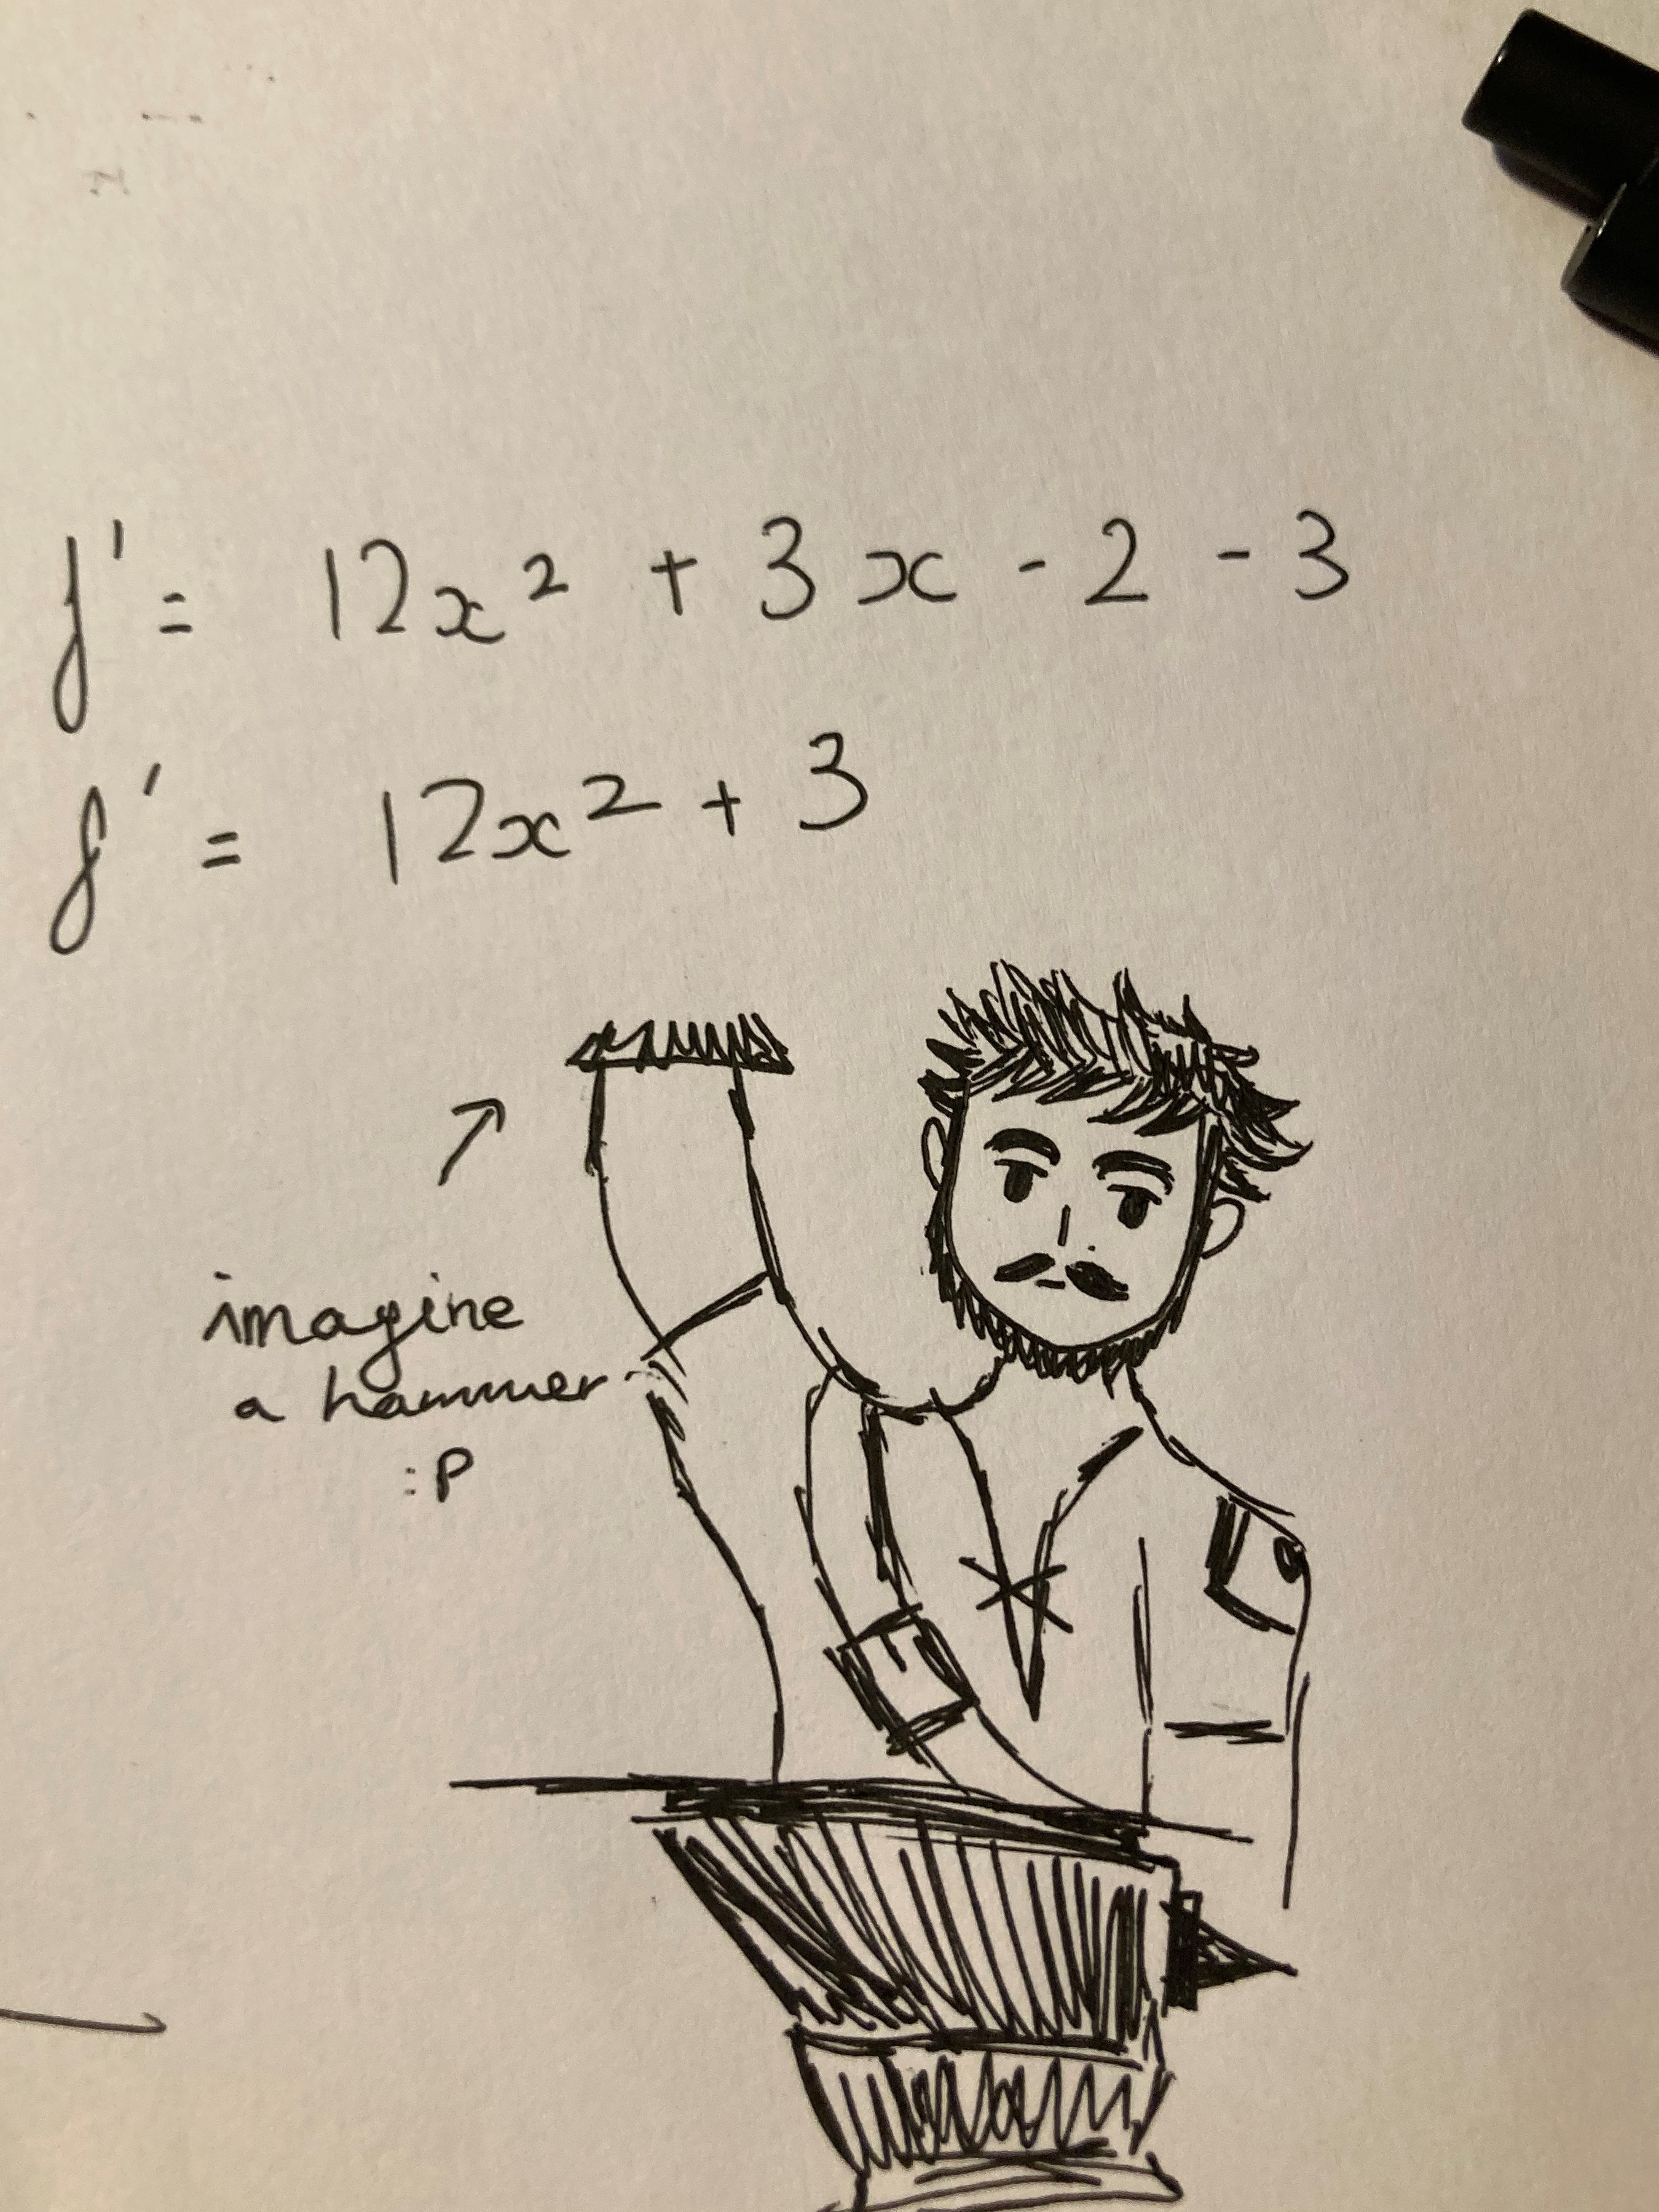 f' = 12x² + 3x - 2 - 3
f' = 12x² + 3
imagine
a hammer
:P